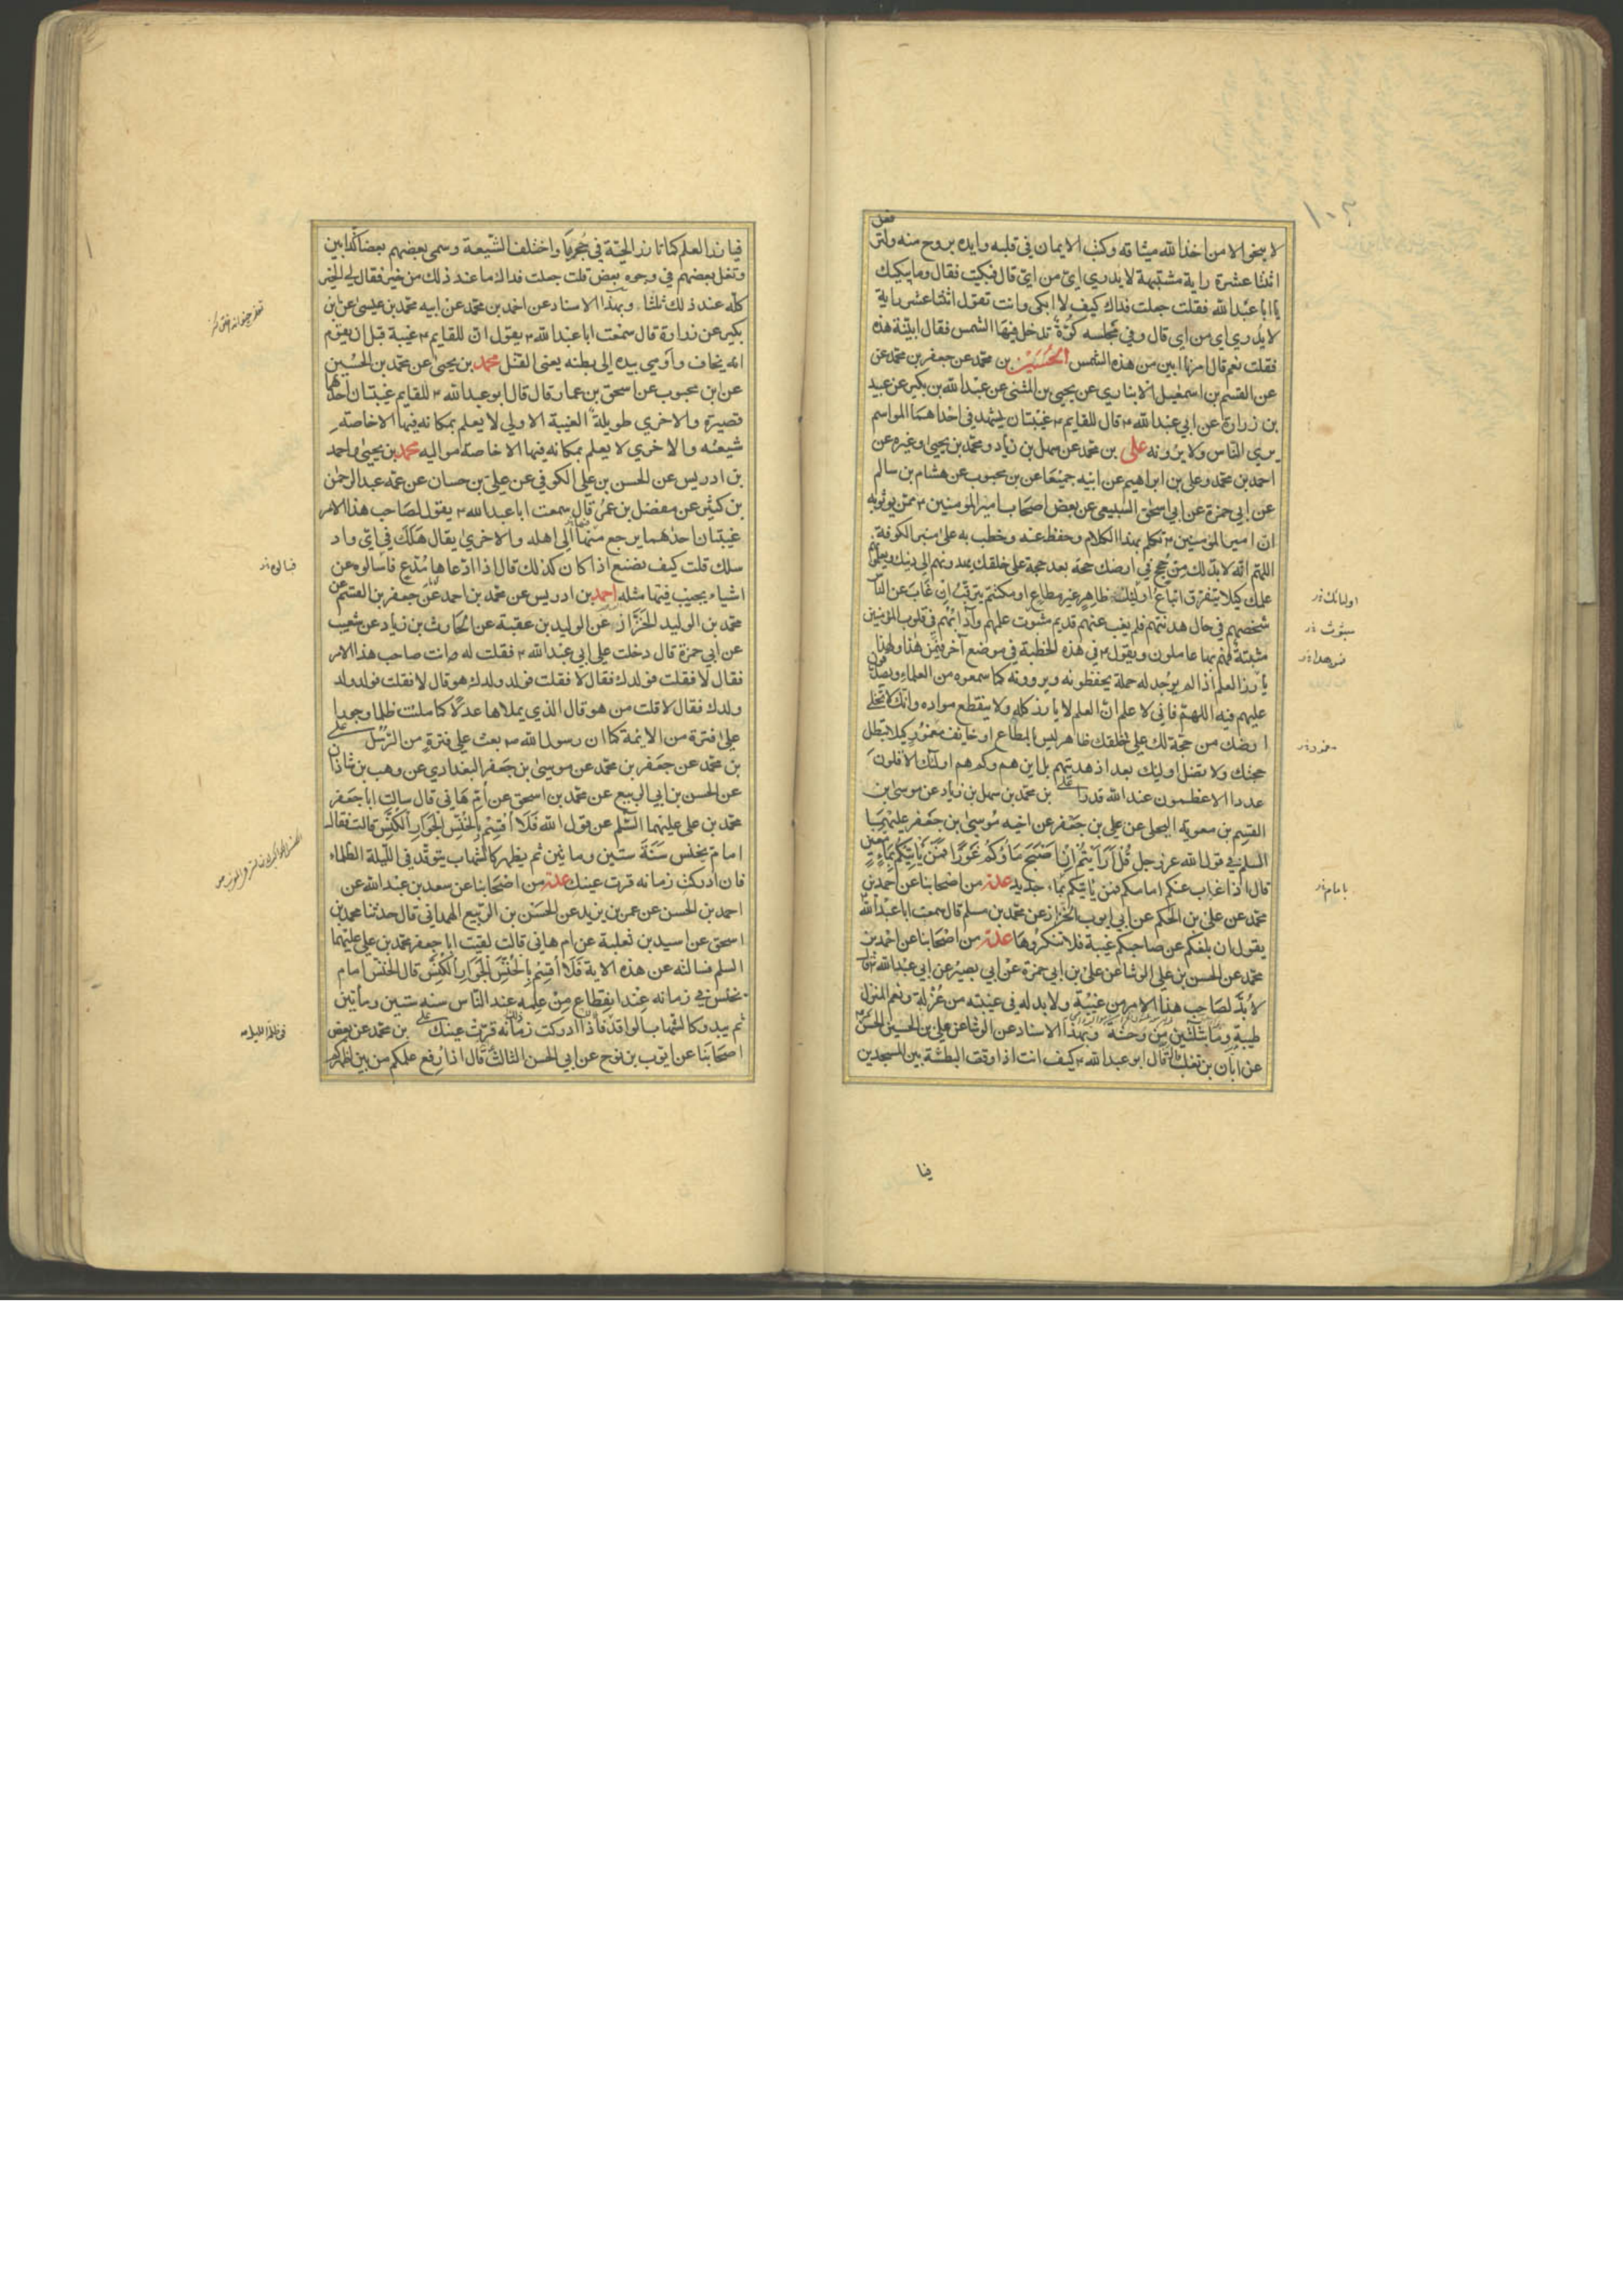 لا ينجو الا من اخذ الله ميثاقه وكتب الايمان في قلبه وايده بروح منه ولترفعن
اثنتا عشرة راية مشتبهة لا يدري اي من اي قال فبكيت فقال وما يبكيك
يا ابا عبد الله فقلت جعلت فداك كيف لا ابكي وانت تقول اثنتا عشر راية
لا يدري اي من اي قال وفي مجلسه كوة تدخل فيها الشمس فقال ابينة هذه
فقلت نعم قال امرنا ابين من هذه الشمس الحسين بن محمد عن جعفر بن محمد عن
عن القسم بن اسمعيل الانباري عن يحيى بن المثنى عن عبد الله بن بكير عن عبيد
بن زرارة عن ابي عبد الله ع قال للقايم ع غيبتان يشهد في احداهما المواسم
يرى الناس ولا يرونه علي بن محمد عن سهل بن زياد ومحمد بن يحيى وغيره عن
احمد بن محمد وعلي بن ابراهيم عن ابيه جميعا عن بن محبوب عن هشام بن سالم
عن ابي حمزة عن ابي اسحق السبيعي عن بعض اصحاب امير المومنين ع ممن يوثق به
ان امير المؤمنين ع تكلم بهذا الكلام وحفظ عنه وخطب به على منبر الكوفة
اللهم انه لا بد لك من حجج في ارضك حجة بعد حجة على خلقك يهدونهم الى دينك ويعلمونهم
علمك كيلا يتفرق اتباع اوليك ظاهر غير مطاع او مكتتم يترقب ان غاب عن الناس
شخصهم في حال هدنتهم فلم يغب عنهم قديم مثبوت علمهم وآدابهم في قلوب المؤمنين
مثبتة فهم بها عاملون ويقول ع في هذه الخطبة في موضع آخر فيمن هذا ولهذا
يأرز العلم اذا لم يوجد له حملة يحفظونه ويروونه كما سمعوه من العلماء ويصدقون
عليهم فيه اللهم فاني لا علم ان العلم لا يارز كله ولا ينقطع مواده وانك لا تخلي
ارضك من حجة لك على خلقك ظاهر ليس بالمطاع او خايف مغمور كيلا تبطل
حجتك ولا يضل اوليك بعد اذ هديتهم بل اين هم وكم هم اولئك الاقلون
عددا الاعظمون عند الله قدرا علي بن محمد بن سهل بن زياد عن موسى بن
القسم بن معوية البجلي عن علي بن جعفر عن اخيه موسى بن جعفر عليهما
السلم في قول الله عز وجل قل ارايتم ان اصبح ماؤكم غورا فمن ياتيكم بماء معين
قال اذا غاب عنكم امامكم فمن ياتيكم بماء جديد عدة من اصحابنا عن احمد بن
محمد عن علي بن الحكم عن ابي ايوب الخزاز عن محمد بن مسلم قال سمعت ابا عبد الله
يقول ان بلغكم عن صاحبكم غيبة فلا تنكروها عدة من اصحابنا عن احمد بن
محمد عن الحسن بن علي الوشا عن علي بن ابي حمزة عن ابي بصير عن ابي عبد الله ع قال
لا بد لصاحب هذا الامر من غيبة ولا بد له في غيبته من عزلة ونعم المنزل
طيبة وما بثلثين من وحشة وبهذا الاسناد عن الوشا عن علي بن الحسين الحسن
عن ابان بن تغلب قال قال ابو عبد الله ع كيف انت اذا وقعت البطشة بين المسجدين
اوليائك
بامام
فيا
فيارز العلم كما تارز الحية في جحرها واختلف الشيعة وسمى بعضهم بعضا كذابين
وتفل بعضهم في وجوه بعض قلت جعلت فداك ما عند ذلك من خير فقال لي الخير
كله عند ذلك ثلثا وبهذا الاسناد عن احمد بن محمد عن ابيه محمد بن عيسى عن ابن
بكير عن زرارة قال سمعت ابا عبد الله ع يقول ان للقايم ع غيبة قبل ان يقوم
انه يخاف واومى بيده الى بطنه يعني القتل محمد بن يحيى عن محمد بن الحسين
عن ابن محبوب عن اسحق بن عمار قال قال ابو عبد الله ع للقايم غيبتان احدهما
قصيرة والاخرى طويلة الغيبة الاولى لا يعلم بمكانه فيها الا خاصة
شيعته والاخرى لا يعلم بمكانه فيها الا خاصة مواليه محمد بن يحيى واحمد
بن ادريس عن الحسن بن علي الكوفي عن علي بن حسان عن عمه عبد الرحمن
بن كثير عن مفضل بن عمر قال سمعت ابا عبد الله ع يقول لصاحب هذا الامر
غيبتان احدهما يرجع منها الى اهله والاخرى يقال هلك في اي واد
سلك قلت كيف نصنع اذا كان كذلك قال اذا ادعاها مدع فاسالوه عن
اشياء يجيب فيها مثله احمد بن ادريس عن محمد بن احمد عن جعفر بن القسم عن
محمد بن الوليد الخزاز عن الوليد بن عقبة عن الحارث بن زياد عن شعيب
عن ابي حمزة قال دخلت على ابي عبد الله ع فقلت له انت صاحب هذا الامر
فقال لا فقلت فولدك فقال لا فقلت فولد ولدك هو قال لا فقلت فولد ولد
ولدك فقال لا قلت من هو قال الذي يملاها عدلا كما ملئت ظلما وجورا
على فترة من الايمة كما ان رسول الله ص بعث على فترة من الرسل علي
بن محمد عن جعفر بن محمد عن موسى بن جعفر البغدادي عن وهب بن شاذان
عن الحسن بن ابي الربيع عن محمد بن اسحق عن ام هاني قال سالت ابا جعفر
محمد بن علي عليهما السلم عن قول الله فلا اقسم بالخنس الجوار الكنس قالت فقال
امام يخنس سنة ستين وماتين ثم يظهر كالشهاب يتوقد في الليلة الظلماء
فان ادركت زمانه قرت عينك عدة من اصحابنا عن سعد بن عبد الله عن
احمد بن الحسن عن عمر بن يزيد عن الحسن بن الربيع الهمداني قال حدثنا محمد بن
اسحق عن اسيد بن ثعلبة عن ام هاني قالت لقيت ابا جعفر محمد بن علي عليهما
السلم فسالته عن هذه الاية فلا اقسم بالخنس الجوار الكنس قال الخنس امام
يخنس في زمانه عند انقطاع من علمه عند الناس سنه ستين ومأتين
ثم يبدو كالشهاب الواقد فاذا ادركت زمانه قرت عينك علي بن محمد عن بعض
اصحابنا عن ايوب بن نوح عن ابي الحسن الثالث ع قال اذا رفع علمكم من بين اظهركم